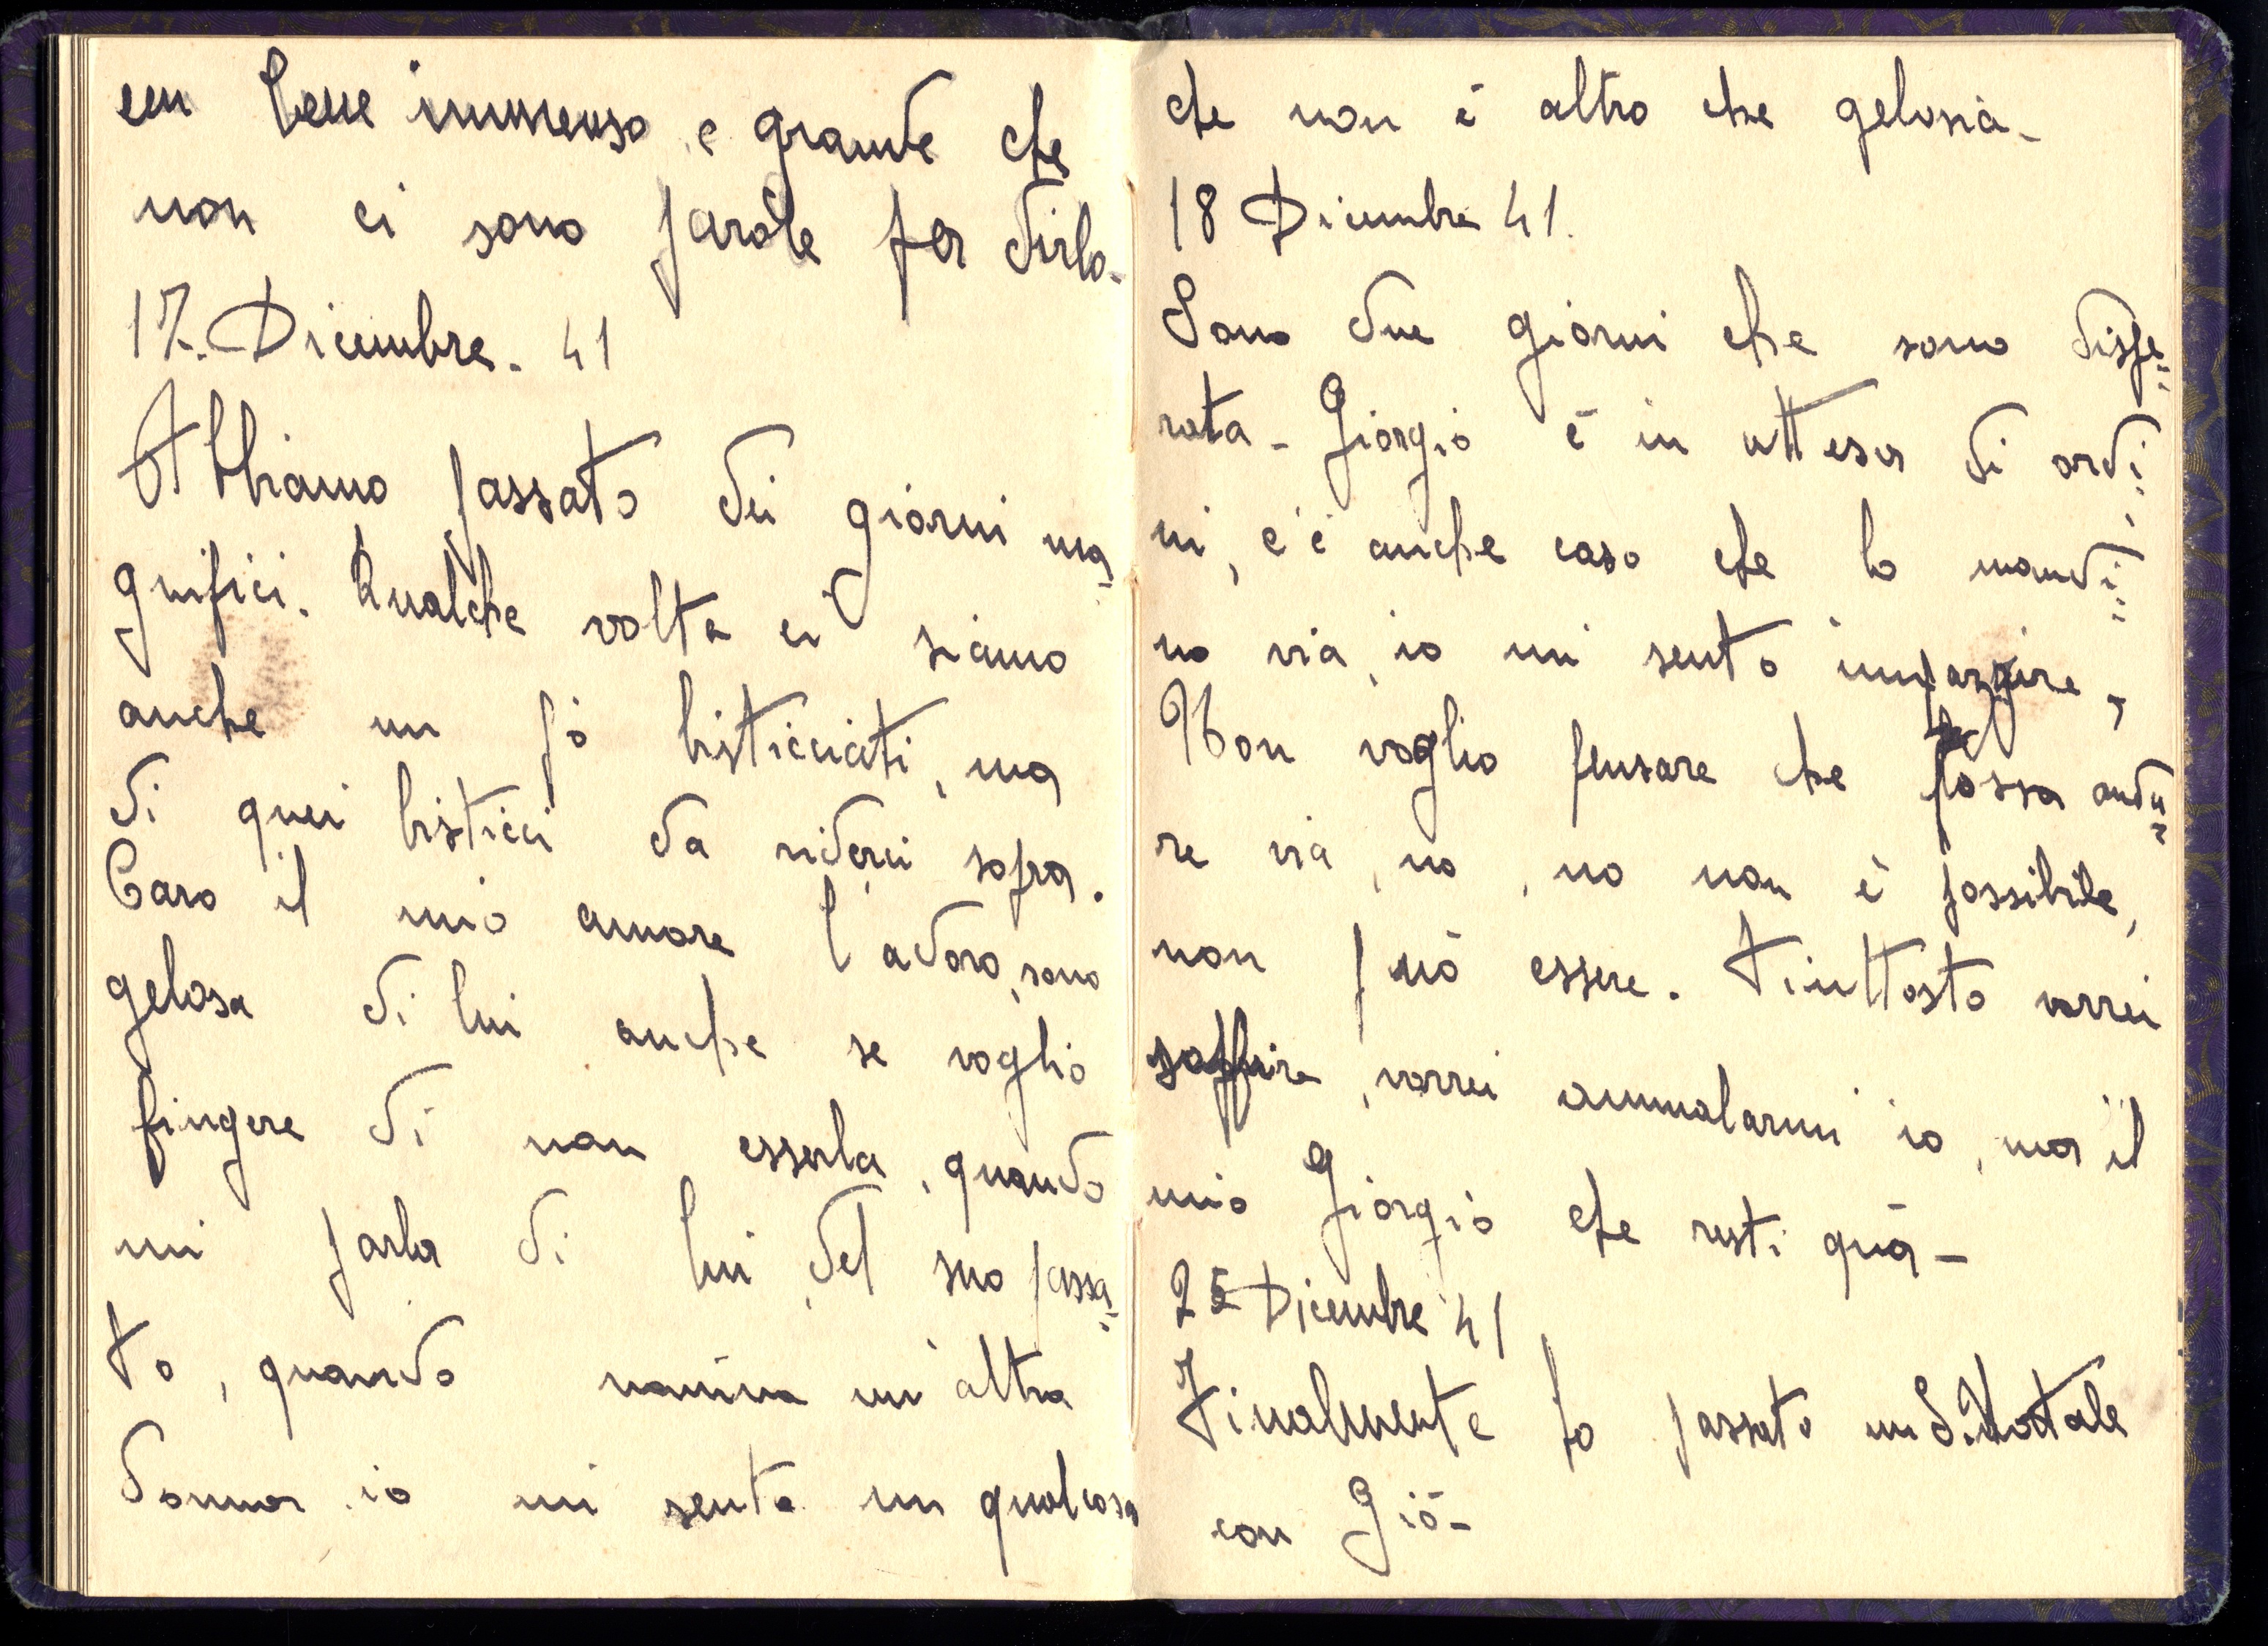 un bene immenso e grande che
non ci sono parole per dirlo-
17. Dicembre. 41
Abbiamo passato dei giorni ma=
gnifici. Qualche volta ci siamo
anche un pò bisticciati, ma
di quei bisticci da riderci sopra.
Caro il mio amore l'adoro, sono
gelosa di lui anche se voglio
fingere di non esserla, quando
mi parla di lui, del suo passa=
to, quando nomina un'altra
donna io mi sento un qualcosa
che non è altro che gelosia-
18 Dicembre 41.
Sono due giorni che sono dispe=
rata- Giorgio è in attesa di ordi=
ni, c'è anche caso che lo mandi=
no via, io mi sento impazzire,
Non voglio pensare che possa anda=
re via, no, no non è possibile,
non può essere. Piuttosto vorrei
soffrire, vorrei ammalarmi io, ma il
mio Giorgio che resti quà-
25 Dicembre 41
Finalmente ho passato un S. Natale
con Giò-